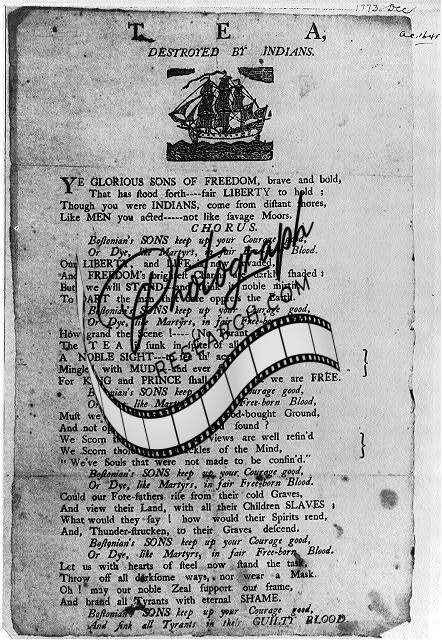 1773. Dec
T E A,
DESTROYED BY INDIANS.
YE GLORIOUS SONS OF FREEDOM, brave and bold,
That has ſtood forth----fair LIBERTY to hold ;
Though you were INDIANS, come from diſtant ſhores,
Like MEN you acted-----not like ſavage Moors.
CHORUS.
Boſtonian's SONS keep up your Courage good,
Or Dye, like Martyrs, in fair Blood.
Our LIBERTY, and LIFE is now invaded,
And FREEDOM's brighteſt ſhaded :
But, we will STAND
To the man
Boſtonian's SONS keep up your Courage good,
Or Dye, like Martyrs, in fair Free-born
How grand the Scene !----(No Tyrant
The T E A ſunk in ſpite of all
A NOBLE SIGHT---to
Mingle with MUD----and ever
For KING and PRINCE ſhall we are FREE.
Boſtonian's SONS keep up your Courage good,
Or Dye, like Martyrs, Free-born Blood.
Muſt we -bought Ground,
And not found ?
We Scorn views are well refin'd
We Scorn Shackles of the Mind,
" We've Souls that were not made to be confin'd."
Boſtonian's SONS keep up your Courage good,
Or Dye, like Martyrs, in fair Free-born Blood.
Could our Fore-fathers riſe from their cold Graves,
And view their Land, with all their Children SLAVES ;
What would they ſay ! how would their Spirits rend,
And, Thunder-ſtrucken, to their Graves deſcend.
Boſtonian's SONS keep up your Courage good,
Or Dye, like Martyrs, in fair Free-born Blood.
Let us with hearts of ſteel now ſtand the taſk,
Throw off all darkſome ways, nor wear a Maſk.
Oh ! may our noble Zeal ſupport our frame,
And brand all Tyrants with eternal SHAME.
Boſtonian's SONS keep up your Courage good,
And ſink all Tyrants in their GUILTY BLOOD.
Photograph
RESEARCH.COM